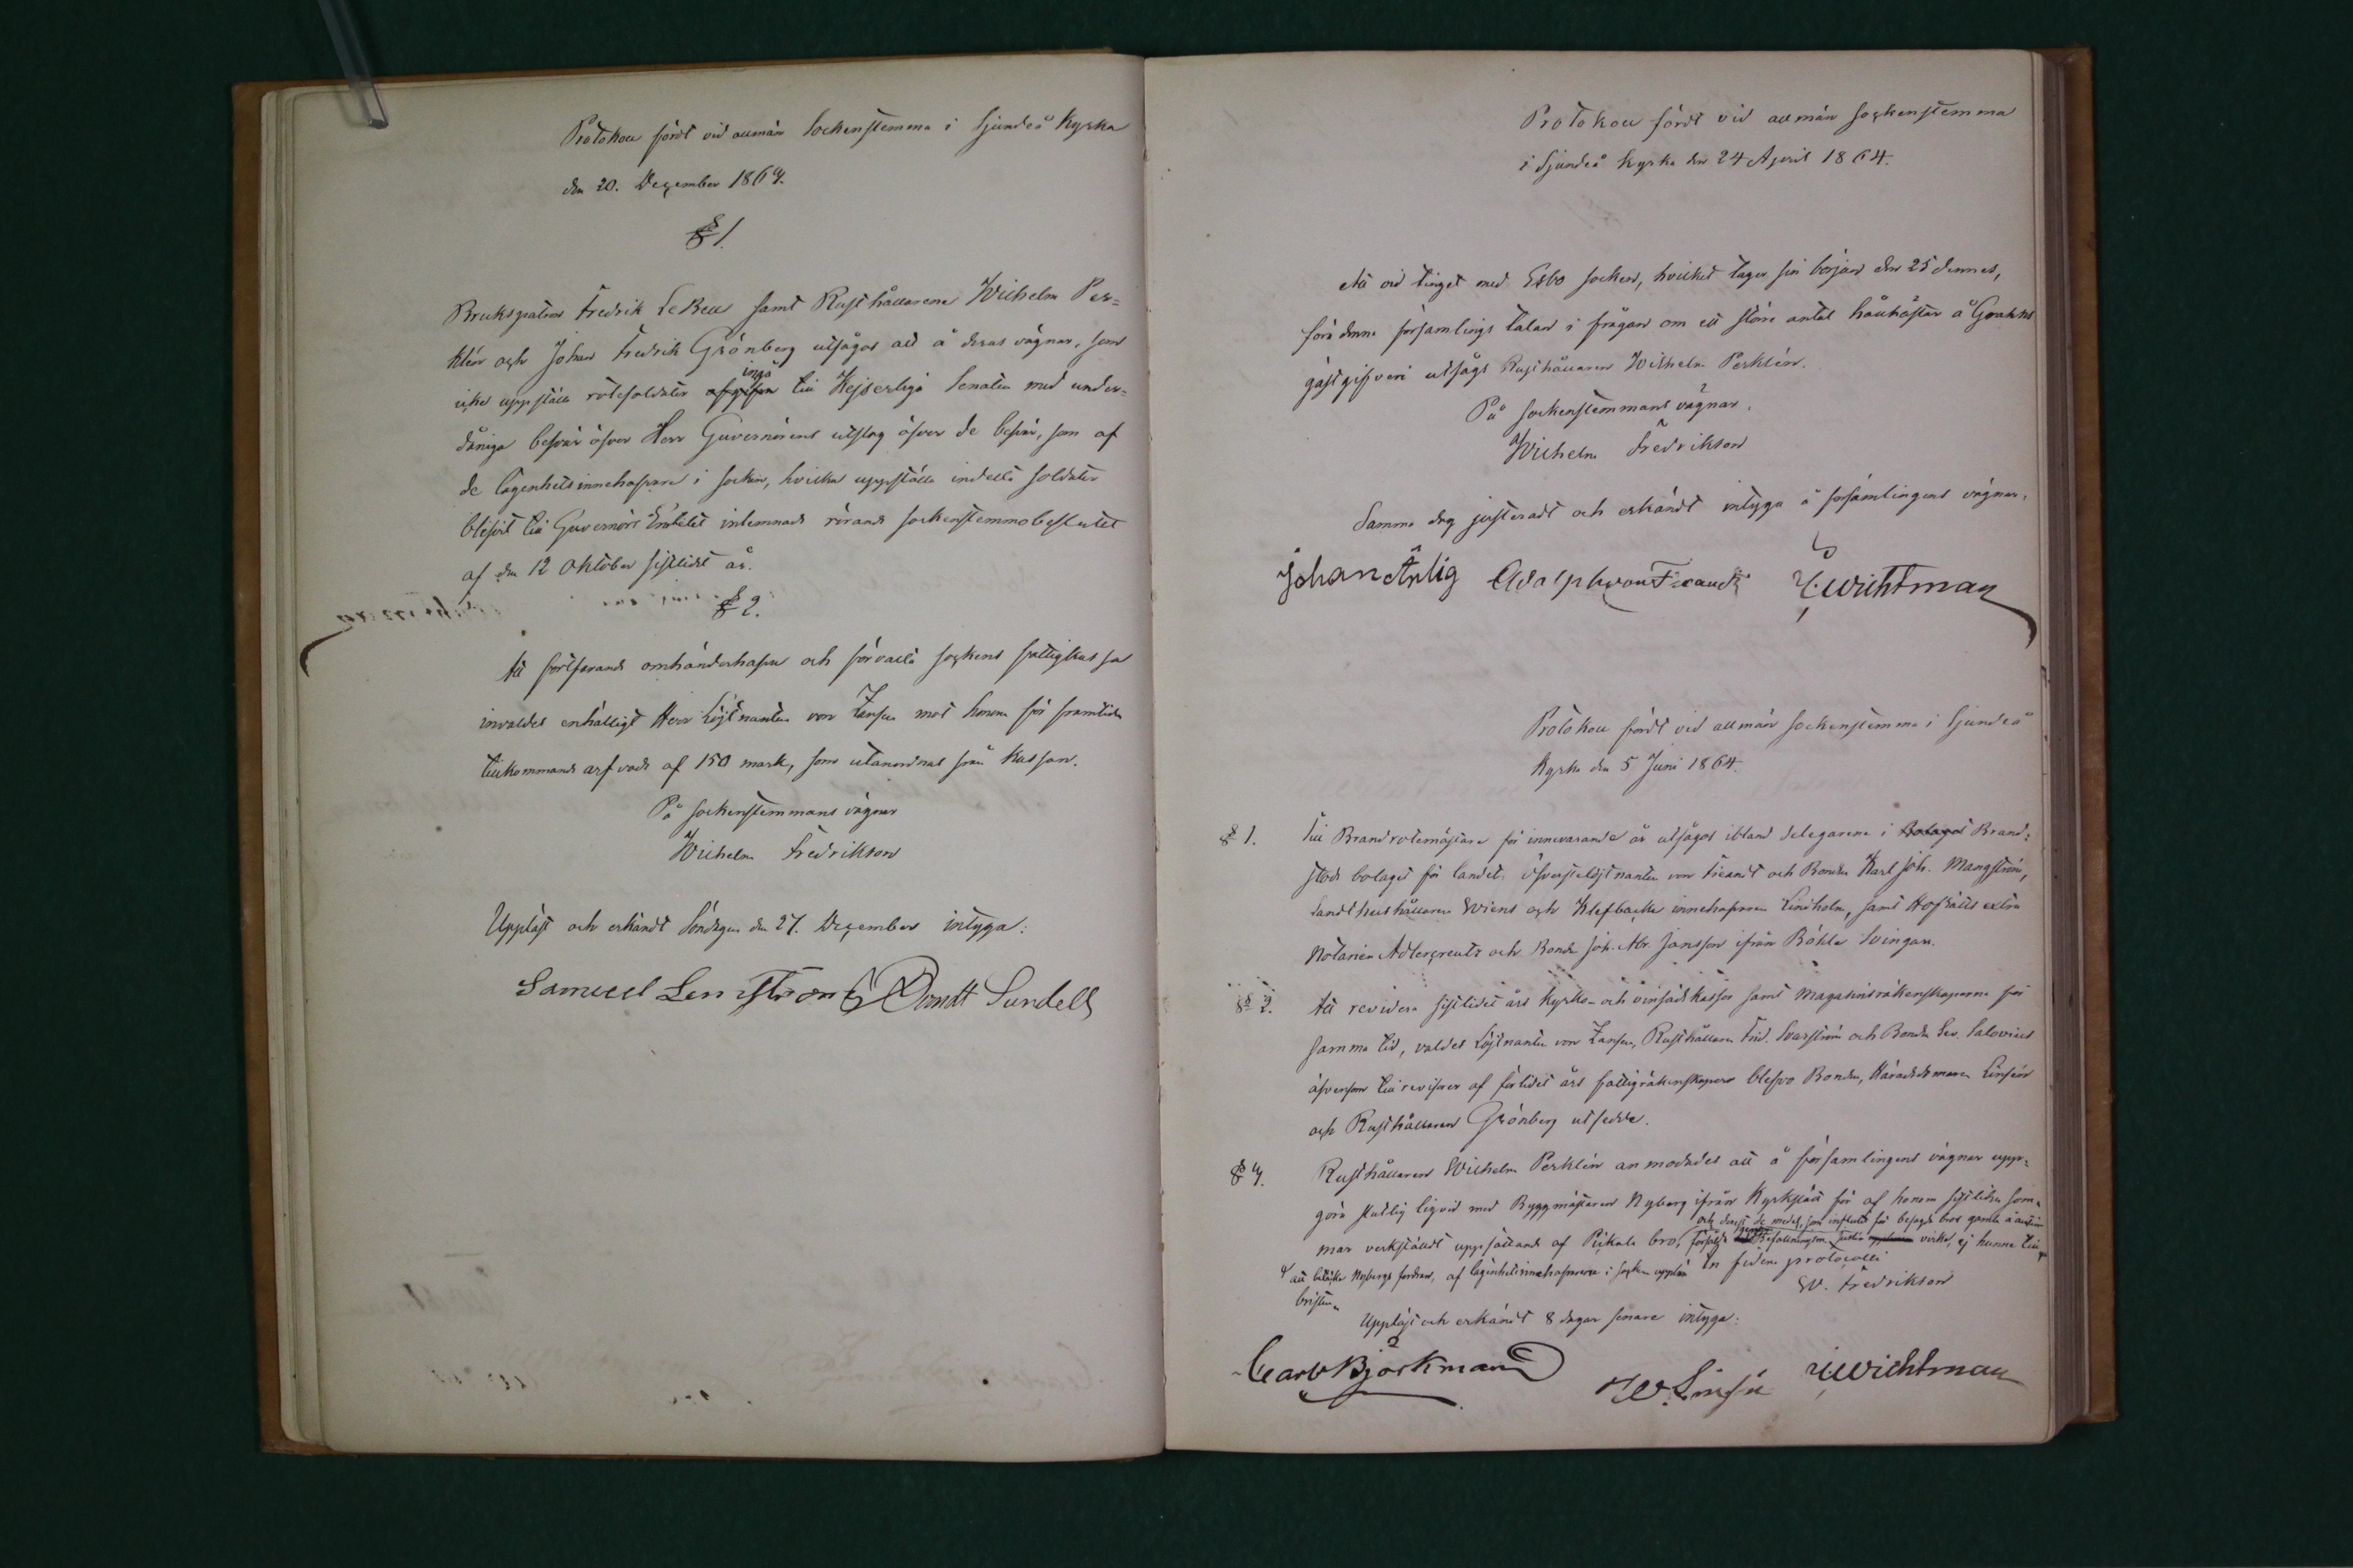 Protokoll fördt vid allmän Sockenstemma i Sjundeå Kyrka
den 20. December 1863.
§ 1.
Brukspatron Fredrik LeBell samt Rusthållarene Wilhelm Per=
klén och Johan Fredrik Grönberg utsågos att å deras vägnar, som
icke uppställa rotesoldater ingå till Kejserliga Senaten med under=
dåniga besvär öfver Herr Guvernörens utslag öfver de besvär, som af
de lägenhetsinnehafvare i socken, hvilka uppställa indelta soldater
blifvit till Guvernörs Embetet inlemnade rörande sockenstemmobeslutet
af den 12 Oktober sistlidet år.
§ 2.
Att fortfarande omhänderhafva och förvalta sockens fattigkassa
invaldes enhälligt Herr Löjtnanten von Zansen mot honom för framtiden
tillkommande arfvode af 150 mark, som utanordnas från kassan.
På sockenstemmans vägnar
Wilhelm Fredrikson
Uppläst och erkändt Söndagen den 27. December intyga:
Samuel Lenström G Brandt Sundell
Protokoll fördt vid allmän sockenstemma
i Sjundeå kyrka den 24 April 1864.
Att vid tinget med Esbo socken, hvilket tager sin början den 25 dennes,
föra denna församlings talan i frågan om ett större antal hållhästar å Grakns
gästgifveri utsågs Rusthållaren Wilhelm Perklén.
På sockenstemmans vägnar.
Wilhelm Fredrikson
Samma dag justeradt och erkändt intyga å församlingens vägnar.
Johan Ärlig Adolph von Fieandt Wichtman
Protokoll fördt vid allmän sockenstemma i Sjundeå
kyrka den 5 Juni 1864.
§ 1. Till Brandrotemästare för innevarande år utsågos ibland delegarena i Bolaget Brand=
stods bolaget för landet: Öfverstelöjtnanten von Fieandt och Bonden Karl Joh. Mangström,
Landthushållaren Wiens och Klefbacka innehafvaren Lindholm, samt Hofrätts extra
Notarien Adlercreutz och Bonden Joh. Abr. Jansson ifrån Böhle Svingars.
§ 2. Att revidera sistlidet års kyrko- och vinsädskassor samt Magasinsräkenskaperna för
samma tid, valdes Löjtnanten von Zansen, Rusthållaren Frid. Svarström och Bonden Sev. Salovius
äfvensom till revisorer af förlidet års fattigräkenskaper blefvo Bonden, Häradsdomaren Linsén
och Rusthållaren Grönberg utsedde.
§ 3. Rusthållaren Wilhelm Perklén anmodades att å församlingens vägnar upp=
göra slutlig liqvid med Byggmästaren Nyberg ifrån Kyrkslätt för af honom sistliden som=
mar verkställdt uppsättande af Pickala bro,
och derest de medel, som influtit för besagde bros gamla å auktion
försålda virke, ej kunna till
att betäcka Nybergs fordran, af lägenhetsinnehafvarena i socken uppbära
bristen.
In fidem protocolli
W. Fredrikson
Uppläst och erkändt 8 dagar senare intyga:
Carl Björkman W. Linsén Wichtman